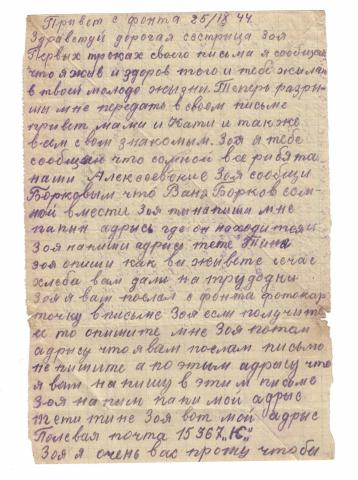 Привет с фонта 25/IX 44
Здравствуй дорогая сестрица Зоя
Первых троках своего письма я сообщаю
что я жив и здоров того и тебе жилаю
в твоей молодо жизни. Теперь разры-
ши мне передать в своем письме
привет мами и Кати и так же
всем своим знакомым. Зоя я тебе
сообщаю что сомной все рибята
наши Алексеевские Зоя сообщи
Борковым что Ваня Борков сом-
ной вмести Зоя ты напиши мне
папин адрысь где он находитсяи
Зоя напиши адрысь тете Тина
Зоя опиши как вы живете сечас
хлеба вам дали на трудодни
Зоя я вам послал с фонта фотокар
точку в письме Зоя если получите
ее то опишите мне Зоя потом
адрысу что я вам послам письмо
не пишите а по этим адрысу что
я вам напишу в этим письме
Зоя напиш папи мой адрыс
тети тине Зоя вот мой адрыс
Полевая почта 15367 „К"
Зоя я очень вас прошу чтобы